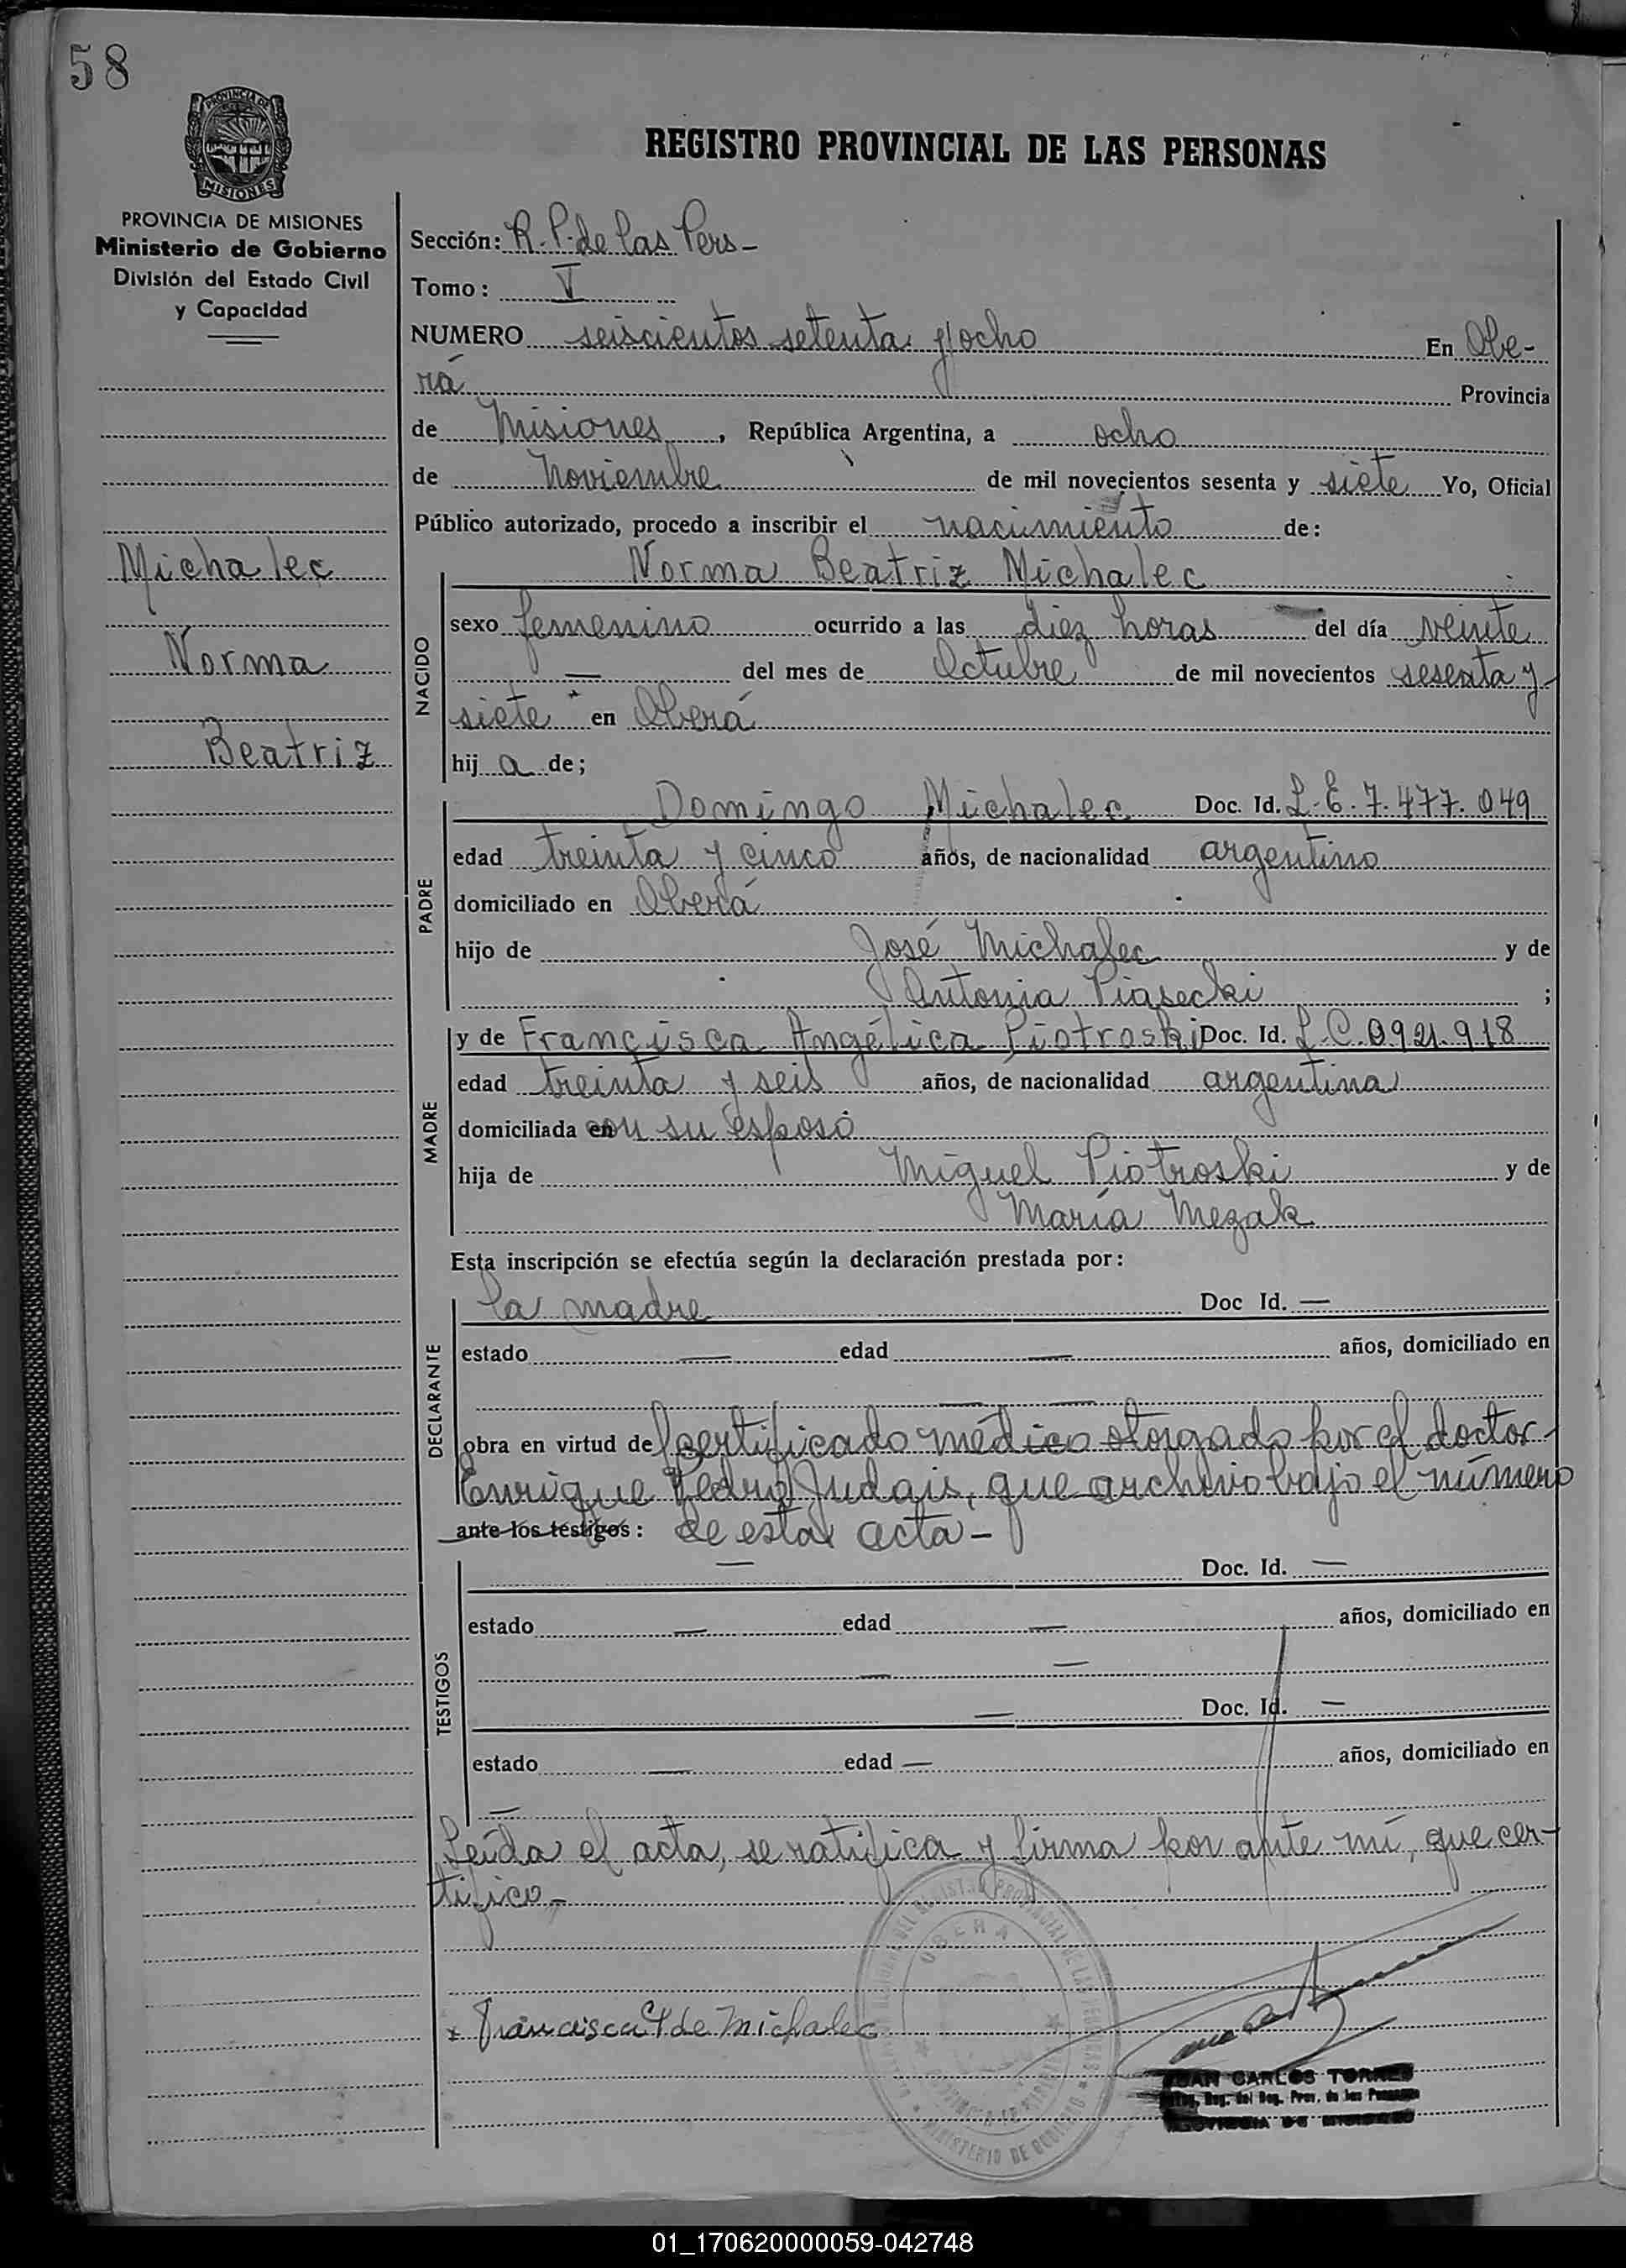 58
PROVINCIA DE
MISIONES
REGISTRO PROVINCIAL DE LAS PERSONAS
PROVINCIA DE MISIONES
Ministerio de Gobierno
División del Estado Civil
y Capacidad
Michalec
Norma
Beatriz
Sección: R. P. de las Pers -
Tomo: V
NUMERO seiscientos setenta y ocho En Obe-
rá Provincia
de Misiones, República Argentina, a ocho
de Noviembre de mil novecientos sesenta y siete Yo, Oficial
Público autorizado, procedo a inscribir el nacimiento de:
Norma Beatriz Michalec
NACIDO
sexo femenino ocurrido a las diez horas del día veinte
— del mes de Octubre de mil novecientos sesenta y
siete en Oberá
hij a de;
PADRE
Domingo Michalec Doc. Id. L. E. 7.477.049
edad treinta y cinco años, de nacionalidad argentino
domiciliado en Oberá
hijo de José Michalec y de
Antonia Piasecki ;
MADRE
y de Francisca Angélica Piotroski Doc. Id. L. C. 0.921.918
edad treinta y seis años, de nacionalidad argentina
domiciliada en con su esposo
hija de Miguel Piotroski y de
María Mezak
Esta inscripción se efectúa según la declaración prestada por:
DECLARANTE
la madre Doc Id. —
estado — edad — años, domiciliado en
— —
obra en virtud del certificado médico otorgado por el doctor
Enrique Pedro Judais, que archivo bajo el número
ante los testigos: de esta acta -
TESTIGOS
— Doc. Id. —
estado — edad — años, domiciliado en
— —
— Doc. Id. —
estado — edad — años, domiciliado en
—
Leída el acta, se ratifica y firma por ante mí, que cer-
tifico -
OBERA
MINISTERIO DE GOBIERNO
x Francisca P de Michalec
JUAN CARLOS TORRES
Reg. del Reg. Prov. de las Personas
PROVINCIA DE MISIONES
01_170620000059-042748